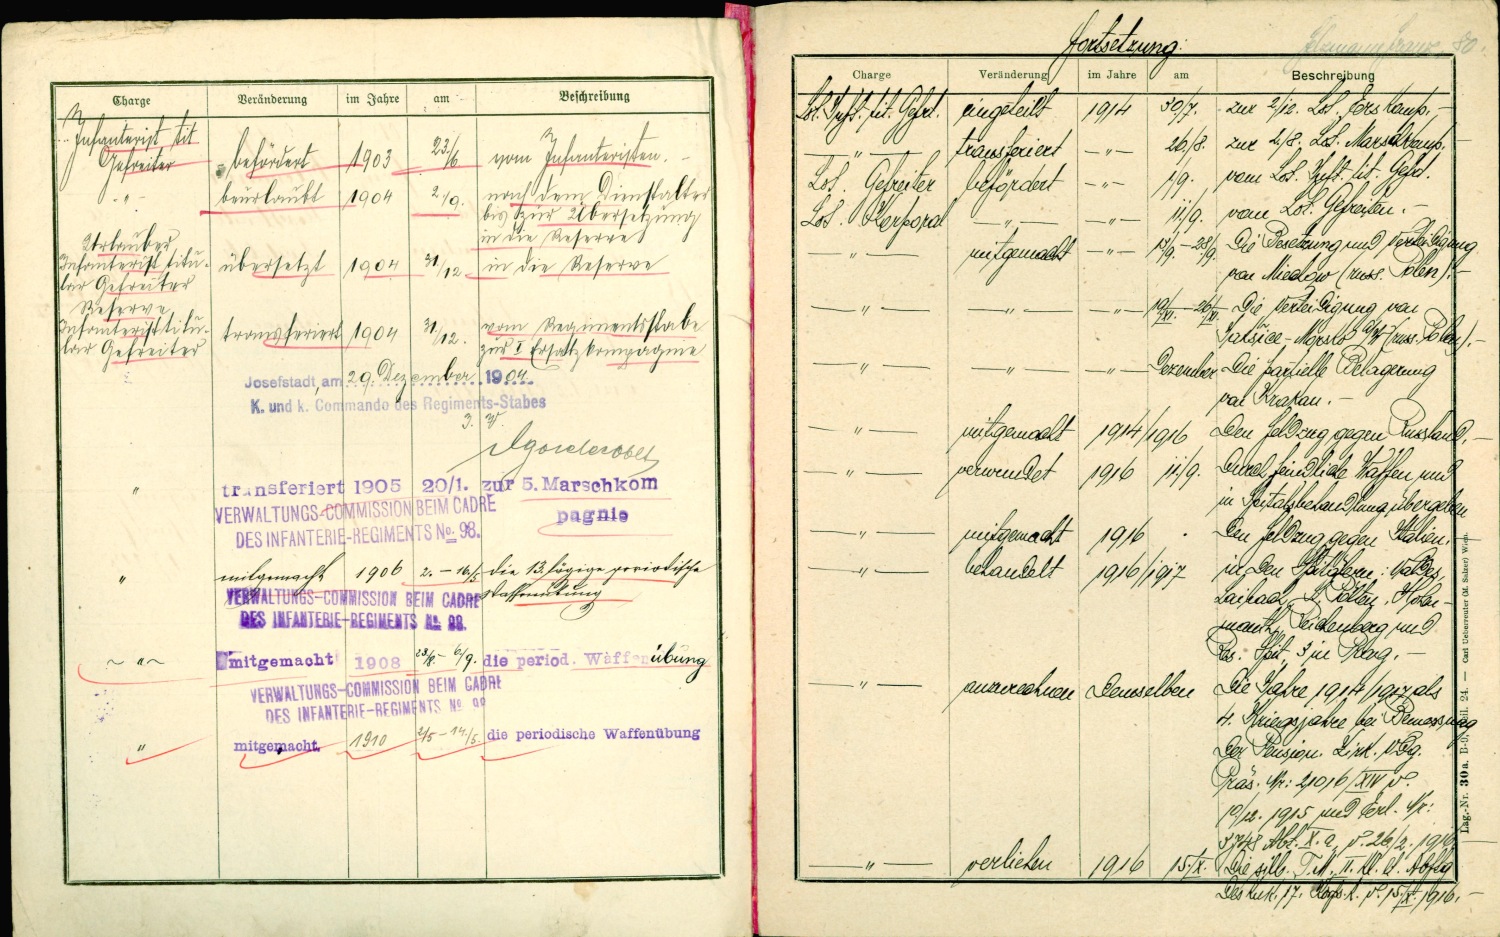 Charge Veränderung im Jahre am Beschreibung
Infanterist tit
Gefreiter befördert 1903 23/6 vom Infanteristen. -
-"- beurlaubt 1904 2/9. nach dem Dienstalter
bis zur Übersetzung
in die Reserve
Urlauber
Infanterist titu-
lar Gefreiter übersetzt 1904 31/12. in die Reserve
Reserve
Infanterist titu-
lar Gefreiter transferiert 1904 31/12. vom Regimentsstabe
zur I Ersatzkompagnie
Josefstadt, am 29. Dezember 1904.
K. und k. Commando des Regiments-Stabes
" transferiert 1905 20/1. zur 5. Marschkom
pagnie
VERWALTUNGS-COMMISSION BEIM CADRE
DES INFANTERIE-REGIMENTS No. 98.
" mitgemacht 1906 2. - 14/5 die 13 tägige periodische
Waffenübung
VERWALTUNGS-COMMISSION BEIM CADRE
DES INFANTERIE-REGIMENTS No. 98.
~ "~ mitgemacht 1908 6/9. die period. Waffenübung
VERWALTUNGS-COMMISSION BEIM CADRE
DES INFANTERIE-REGIMENTS No. 98
" mitgemacht. 1910 2/5 - 14/5. die periodische Waffenübung
Fortsetzung:
80.
Charge Veränderung im Jahre am Beschreibung
Lst. Inft. tit. Gefrt. eingeteilt 1914 30/7. zur 2/12. Lst. Ers. Komp. -
— " — transferiert -"- 26/8. zur 2/8. Lst. Marschkomp.
Lst. Gefreiter befördert -"- 1/9. vom Lst. Inft. tit. Gefrt.
Lst. Korporal — " — — " — 11/9. vom Lst. Gefreiten. -
— " — mitgemacht -"- Die Besetzung und Verteidigung
von (russ. Polen). -
— " — — " — — " — 19/XI. - 26/XI. Die Verteidigung von
(russ. Polen). -
— " — — " — — " — Dezember Die partielle Belagerung
von Krakau. -
— " — mitgemacht 1914/1916 Den Feldzug gegen Russland. -
— " — verwundet 1916 11/9. Durch feindliche Waffen und
in Spitalsbehandlung übergeben
— " — mitgemacht 1916 Den Feldzug gegen Italien. -
— " — behandelt 1916/1917 in den Spitälern:
Laibach, St. Pölten,
Reichenberg und
Res. Spit. 3 in Prag. -
— " — anzurechnen Demselben Die Jahre 1914/1917 als
4. Kriegsjahre bei Bemessung
der Pension. Zirk. Vdg.
Präs. Nr: 21016/XIV v.
10/12. 1915 und Erl. Nr:
Abt. X. a. v. 26/2. 1916.
— " — verliehen 1916 15/X. Die silb. T.M. II. Kl. lt.
des k.u.k. 17. v. 15/X. 1916. -
Lag.-Nr. 30a. B-ü. Teil. 24. — Carl Ueberreuter (M. Salzer) Wien.